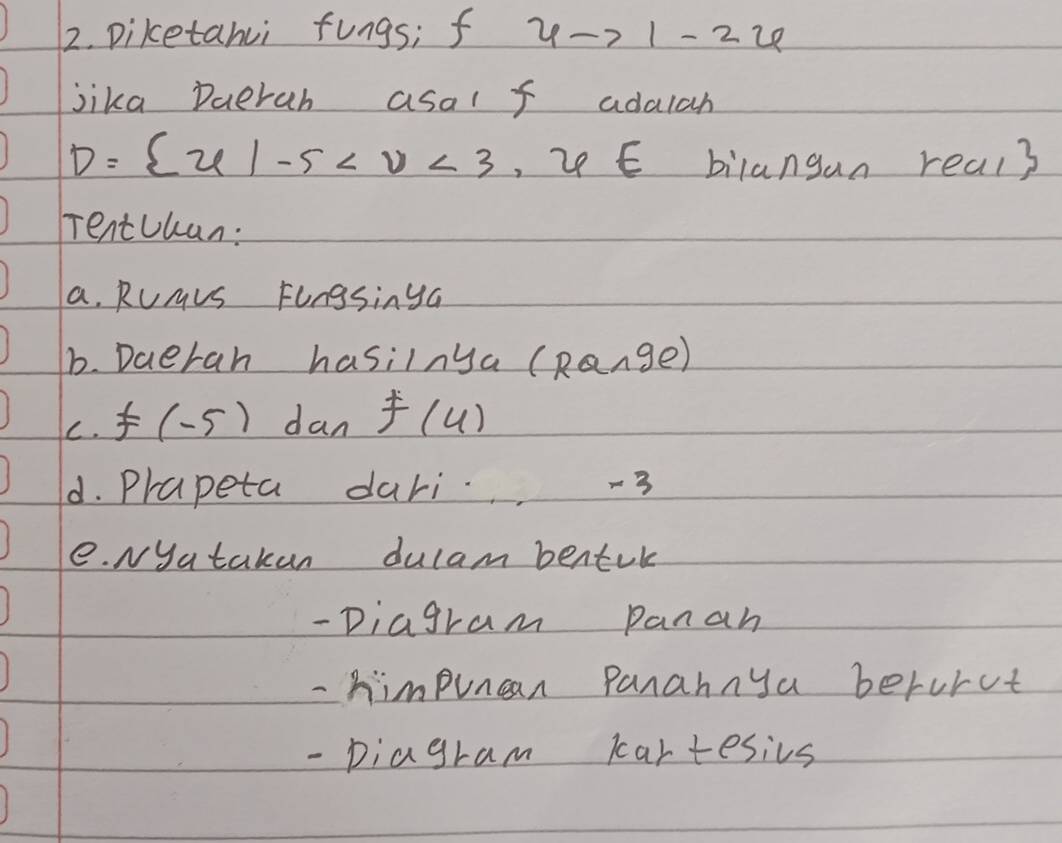 2. Diketahui fungsi f x -> 1 - 2x
jika Daerah asal f adalah
D = {x | -5 < x < 3, x € bilangan real}
Tentukan:
a. Rumus Fungsinya
b. Daerah hasilnya (Range)
c. f (-5) dan f (4)
d. Prapeta dari ... -3
e. Nyatakan dalam bentuk
- Diagram Panah
- himpunan Panahnya berurut
- Diagram kartesius